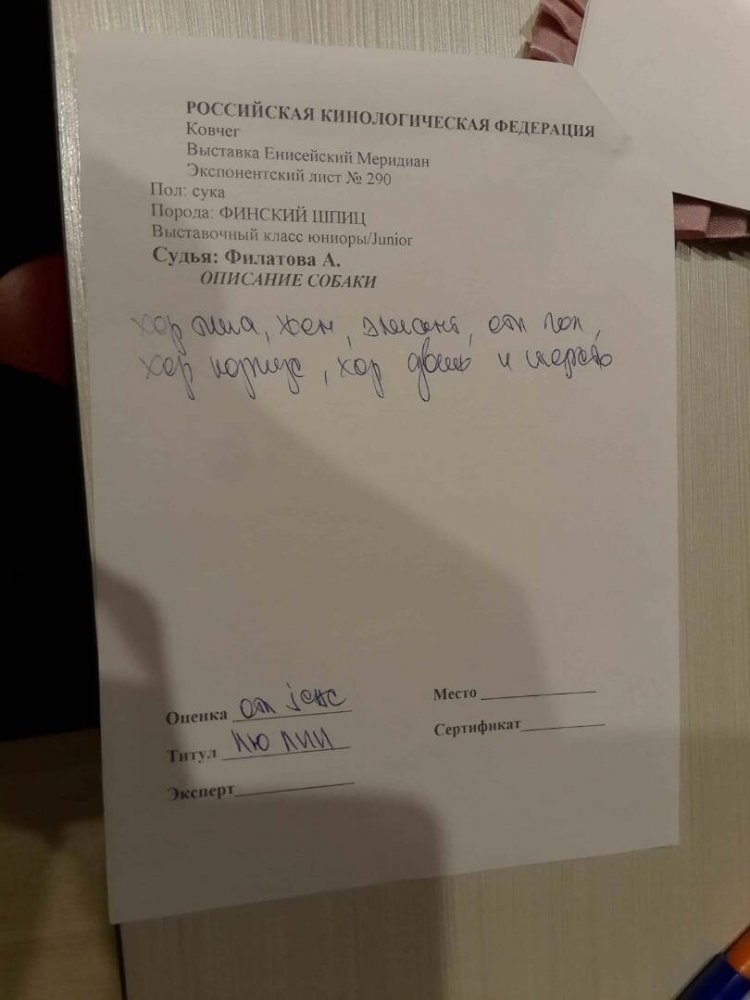 РОССИЙСКАЯ КИНОЛОГИЧЕСКАЯ ФЕДЕРАЦИЯ
Ковчег
Выставка Енисейский Меридиан
Экспонентский лист № 290
Пол: сука
Порода: ФИНСКИЙ ШПИЦ
Выставочный класс юниоры/Junior
Судья: Филатова А.
ОПИСАНИЕ СОБАКИ
хор типа, жен, элегант, отл гол,
хор корпус, хор движ и шерсть
Оценка отл
Место
Титул ЛЮ ЛПП
Сертификат
Эксперт